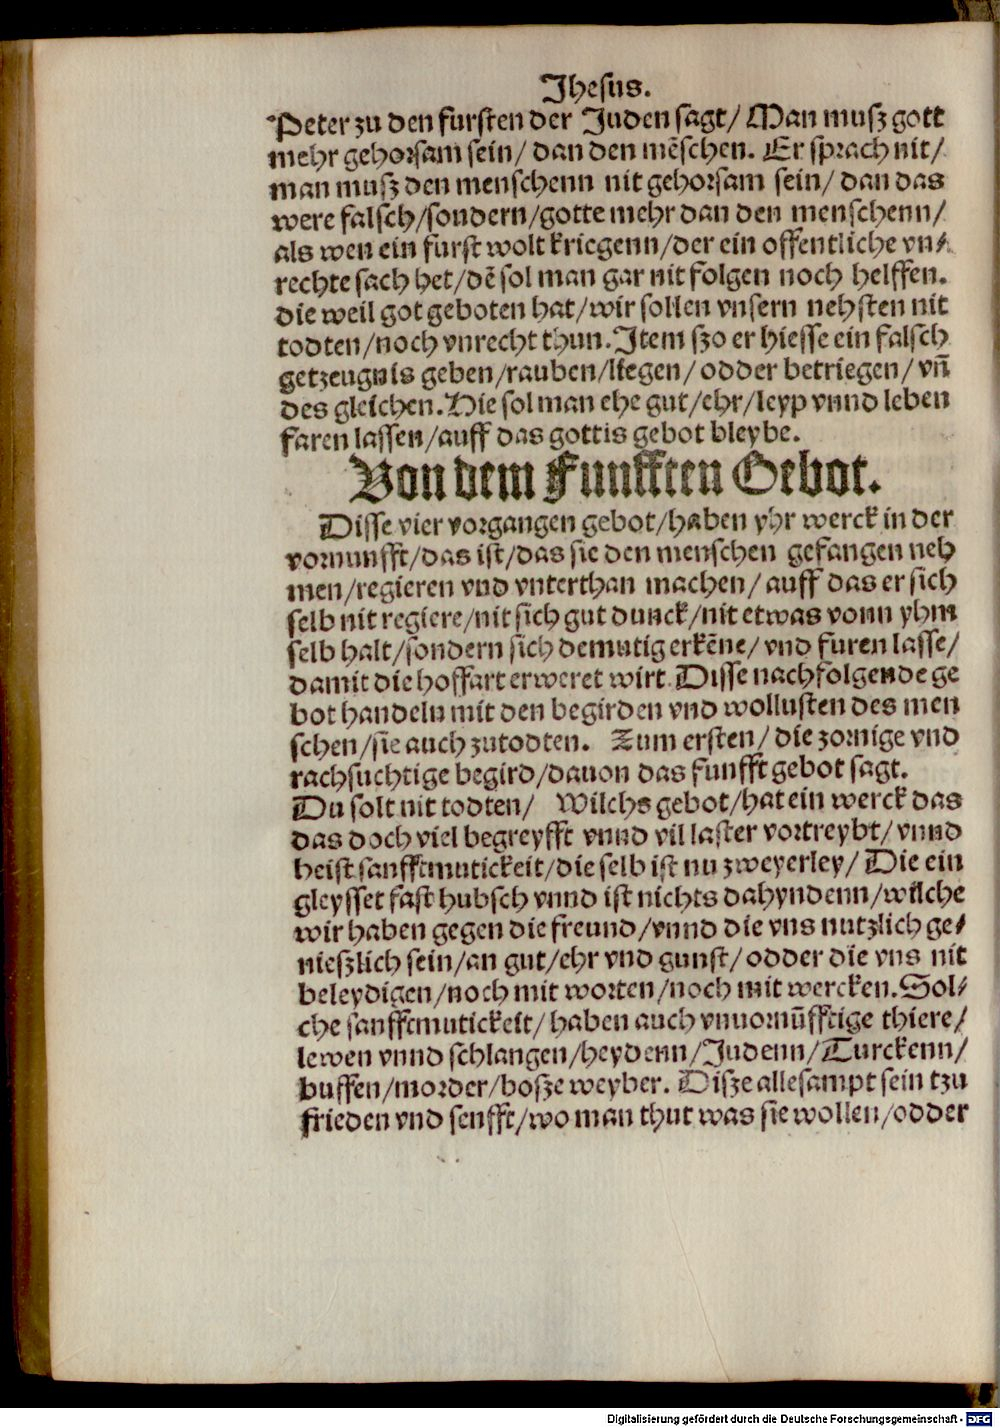 Jhesus.
Peter zu den fursten der Juden sagt/ Man musz gott
mehr gehorsam sein/ dan den mēschen. Er sprach nit/
man musz den menschenn nit gehorsam sein/ dan das
were falsch/sondern/gotte mehr dan den menschenn/
als wen ein furst wolt kriegenn/der ein offentliche vn⸗
rechte sach het/dē sol man gar nit folgen noch helffen.
die weil got geboten hat/wir sollen vnsern nehsten nit
todten/noch vnrecht thun. Item szo er hiesse ein falsch
getzeugnis geben/rauben/liegen/ odder betriegen/ vn̄
des gleichen. Hie sol man ehe gut/ehr/leyp vnnd leben
faren lassen/auff das gottis gebot bleybe.
Von dem Funfften Gebot.
Disse vier vorgangen gebot/haben yhr werck in der
vornunfft/das ist/das sie den menschen gefangen neh
men/regieren vnd vnterthan machen/ auff das er sich
selb nit regiere/nit sich gut dunck/nit etwas vonn yhm
selb halt/sondern sich demutig erkēne/ vnd furen lasse/
damit die hoffart erweret wirt. Disse nachfolgende ge
bot handeln mit den begirden vnd wollusten des men
schen/sie auch zutodten. Zum ersten/ die zornige vnd
rachsuchtige begird/dauon das funfft gebot sagt.
Du solt nit todten/ Wilchs gebot/hat ein werck das
das doch viel begreyfft vnnd vil laster vortreybt/ vnnd
heist sanfftmutickeit/die selb ist nu zweyerley/ Die ein
gleysset fast hubsch vnnd ist nichts dahyndenn/wilche
wir haben gegen die freund/vnnd die vns nutzlich ge⸗
nieszlich sein/an gut/ehr vnd gunst/ odder die vns nit
beleydigen/noch mit worten/noch mit wercken. Sol⸗
che sanfftmutickeit/ haben auch vnuornūfftige thiere/
lewen vnnd schlangen/heydenn/Judenn/Turckenn/
buffen/morder/bosze weyber. Disze allesampt sein tzu
frieden vnd senfft/wo man thut was sie wollen/odder
Digitalisierung gefördert durch die Deutsche Forschungsgemeinschaft - DFG